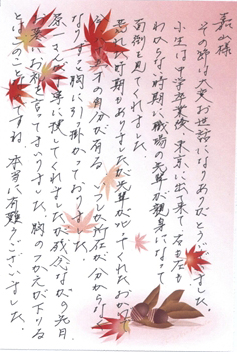 嘉山様
その節は大変お世話になりありがとうございました。
小生は中学卒業後、東京に出て来て右も左も
わからない時期に職場の先輩が親身になって
面倒を見てくれました。
荒れた時期もありましたが先輩が叱ってくれたおかげで
今の自分が有る。いつしか所在が分からな
くなりずっと胸に引掛かっておりました。
原一さんが丁寧に捜してくれましたが残念ながら
お礼を言ってまいりました。胸のつかえが下りる
とはこのことですね。本当に有難うございました。